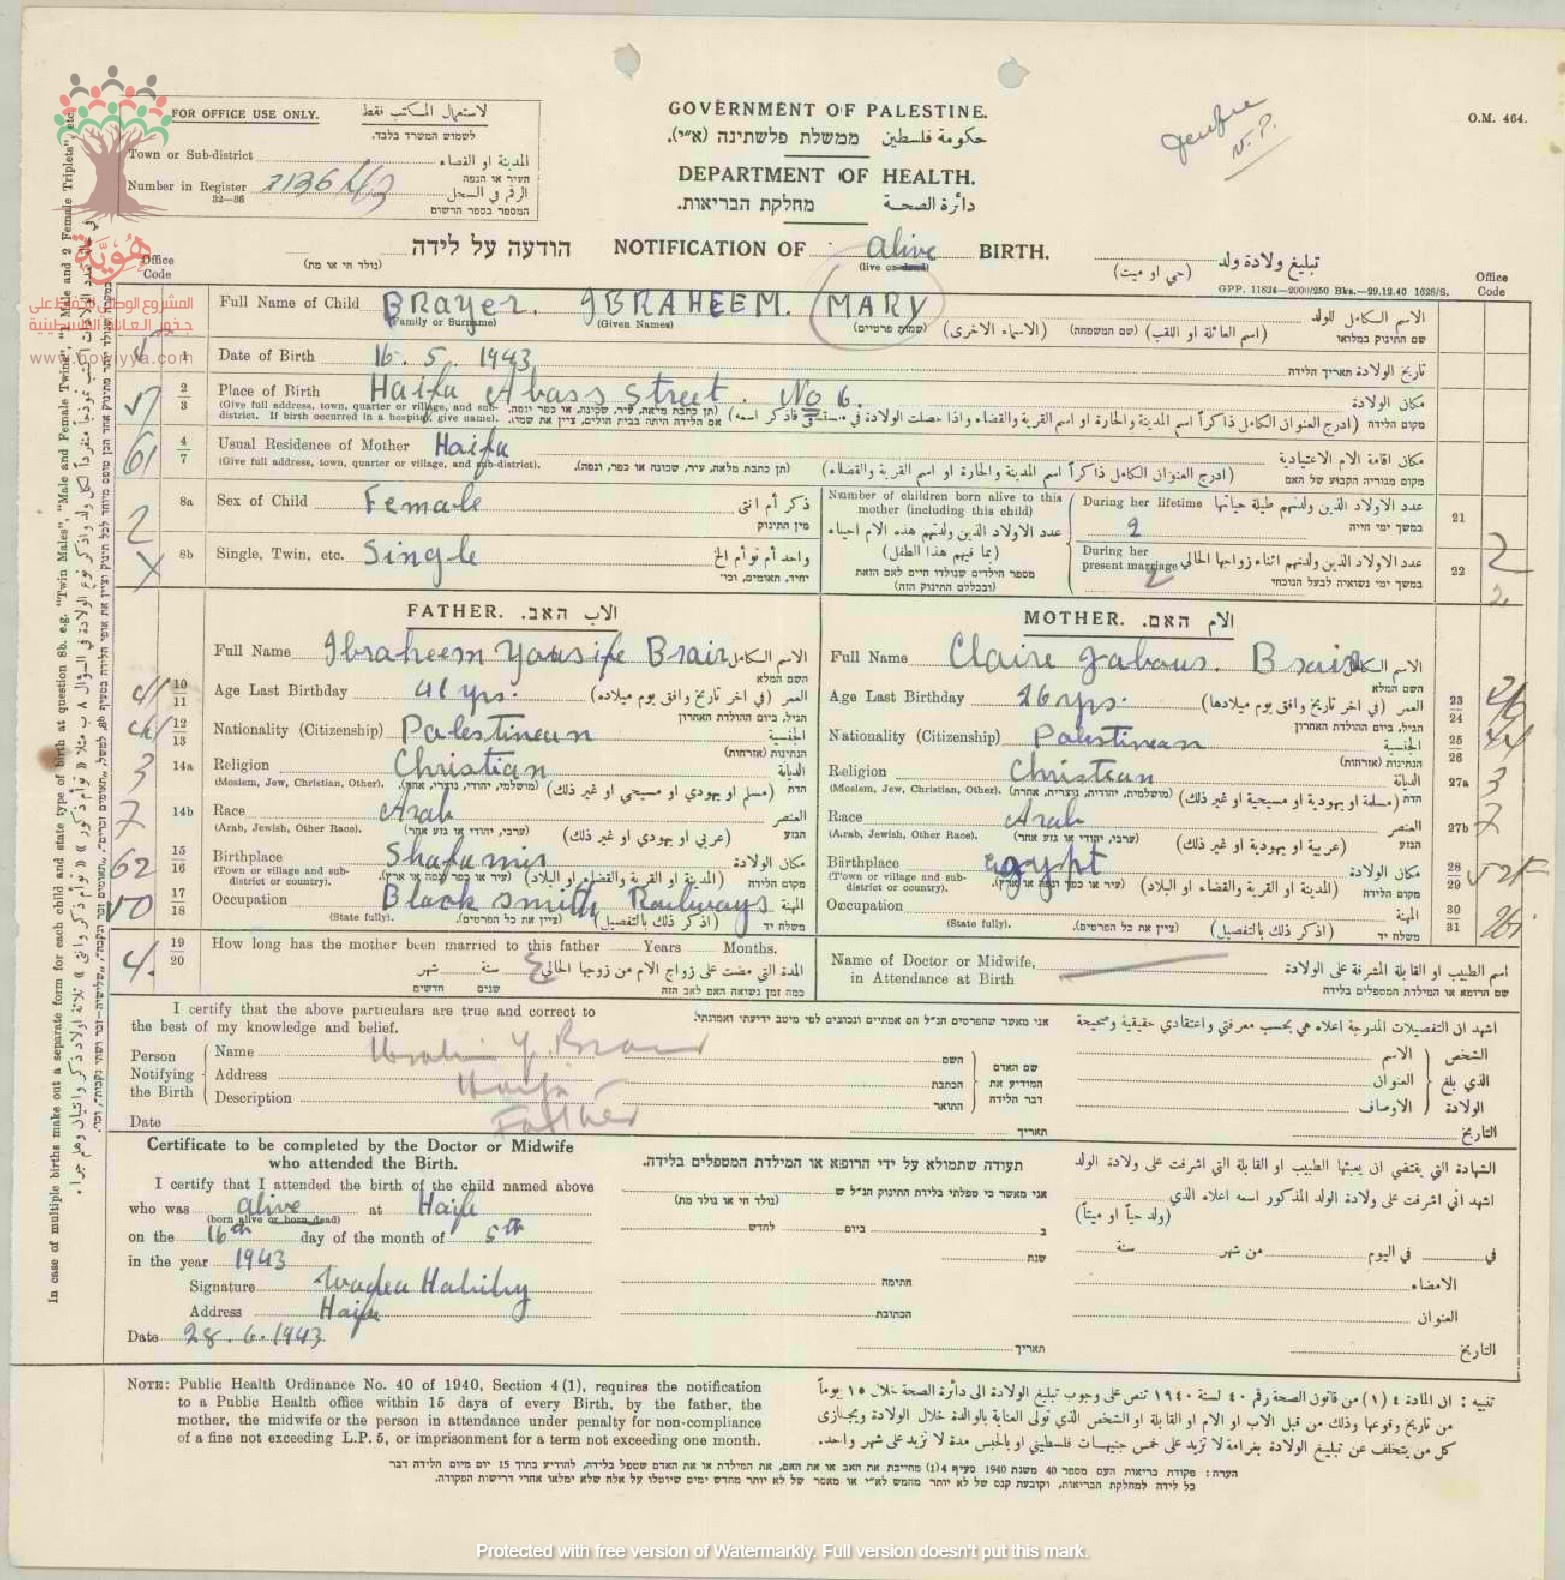 O.M. 464.
FOR OFFICE USE ONLY. لاستعمال المكتب فقط
לשמוש המשרד בלבד.
Town or Sub-district المدينة او القضاء
העיר או הנפה
Number in Register 7136/43 الرقم في السجل
32—36
המספר בספר הרשום
GOVERNMENT OF PALESTINE.
ממשלת פלשתינה (א״י). حكومة فلسطين
DEPARTMENT OF HEALTH.
מחלקת הבריאות. دائرة الصحة
הודעה על לידה NOTIFICATION OF alive BIRTH. تبليغ ولادة ولد
(נולד חי או מת) (live or dead) (حي او ميت)
GPP. 11824—2000/250 Bks.—29.12.40 1028/S.
Office Code
Office Code
هُوِيَّة
المشروع الوطني للحفاظ على
جذور العائلة الفلسطينية
www.howiyya.com
Full Name of Child Brayer. IBRAHEEM. (MARY) الاسم الكامل للولد
(Family or Surname) (Given Names) (שמות פרטיים) (الاسماء الاخرى) (שם המשפחה) (اسم العائلة او اللقب) שם התינוק במלואו
1 Date of Birth 16. 5. 1943 תאריך הלידה تاريخ الولادة
2/3 Place of Birth Haifa Abass Street. No 6. مكان الولادة
(Give full address, town, quarter or village, and sub-district. If birth occurred in a hospital, give name). מקום הלידה
61 4/7 Usual Residence of Mother Haifa مكان اقامة الام الاعتيادية
(Give full address, town, quarter or village, and sub-district). (ادرج العنوان الكامل ذاكراً اسم المدينة والحارة او اسم القرية والقضاء)
2 8a Sex of Child Female ذكر أم انثى
מין התינוק
X 8b Single, Twin, etc. Single واحد أم توأم الخ
יחיד, תאומים, וכו׳
Number of children born alive to this mother (including this child)
عدد الاولاد الذين ولدتهم هذه الام احياء
(بما فيهم هذا الطفل)
מספר הילדים שנולדו חיים לאם הזאת
(ובכללם התינוק הזה)
During her lifetime عدد الاولاد الذين ولدتهم طيلة حياتها 21
2 במשך ימי חייה 2
During her present marriage 2 عدد الاولاد الذين ولدتهم اثناء زواجها الحالي 22
במשך ימי נשואיה לבעל הנוכחי 2
FATHER. האב. الاب
Full Name Ibraheem Yousife Brair الاسم الكامل
השם המלא
41 10/11 Age Last Birthday 41 yrs. العمر (في اخر تاريخ وافق يوم ميلاده)
הגיל, ביום ההולדת האחרון
12/13 Nationality (Citizenship) Palestinean الجنسية
הנתינות (אזרחות)
3 14a Religion Christian الديانة
(Moslem, Jew, Christian, Other). (מוסלמי, יהודי, נוצרי, אחר). (مسلم او يهودي او مسيحي او غير ذلك) הדת
7 14b Race Arab العنصر
(Arab, Jewish, Other Race). (ערבי, יהודי או גזע אחר) (عربي او يهودي او غير ذلك) הגזע
62 15/16 Birthplace Shafamir مكان الولادة
(Town or village and sub-district or country). (المدينة او القرية والقضاء او البلاد) מקום הלידה
17/18 Occupation Black smith Railways المهنة
(State fully). (ציין את כל הפרטים). (اذكر ذلك بالتفصيل) משלח יד
MOTHER. האם. الام
Full Name Claire Jabour. Brair الاسم الكامل
השם המלא
Age Last Birthday 26 yrs. العمر (في اخر تاريخ وافق يوم ميلادها) 23/24
הגיל, ביום ההולדת האחרון
Nationality (Citizenship) Palestinean الجنسية 25/26
הנתינות (אזרחות)
Religion Christean الديانة 27a 3
(Moslem, Jew, Christian, Other). (מוסלמית, יהודית, נוצרית, אחרת) (مسلمة او يهودية او مسيحية او غير ذلك) הדת
Race Arab العنصر 27b 7
(Arab, Jewish, Other Race). (ערבי, יהודי או גזע אחר) (عربية او يهودية او غير ذلك) הגזע
Birthplace egypt مكان الولادة 28/29
(Town or village and sub-district or country). (المدينة او القرية والقضاء او البلاد) מקום הלידה
Occupation المهنة 30/31
(State fully). (ציין את כל הפרטים). (اذكر ذلك بالتفصيل) משלח יד
4. 19/20 How long has the mother been married to this father Years Months.
المدة التي مضت على زواج الام من زوجها الحالي سنة شهر
כמה זמן נשואה האם לאב הזה שנים חדשים
Name of Doctor or Midwife, in Attendance at Birth اسم الطبيب او القابلة المشرفة على الولادة
שם הרופא או המילדת המטפלים בלידה
I certify that the above particulars are true and correct to
the best of my knowledge and belief.
אני מאשר שהפרטים הנ״ל הם אמתיים ונכונים לפי מיטב ידיעתי ואמונתי.
اشهد ان التفصيلات المدرجة اعلاه هي بحسب معرفتي واعتقادي حقيقية وصحيحة
Person Notifying the Birth
Name Ibrahim Y. Brair השם الاسم
Address Haifa הכתבת العنوان
Description Father התואר الاوصاف
שם האדם המודיע את דבר הלידה
الشخص الذي بلغ الولادة
Date תאריך التاريخ
Certificate to be completed by the Doctor or Midwife
who attended the Birth.
תעודה שתמולא על ידי הרופא או המילדת המטפלים בלידה.
الشهادة التي يقتضي ان يعبئها الطبيب او القابلة التي اشرفت على ولادة الولد
I certify that I attended the birth of the child named above
who was alive at Haifa
(born alive or born dead)
on the 16th day of the month of 5th
in the year 1943
Signature Wadea Habiby
Address Haifa
Date 28. 6. 1943.
אני מאשר כי טפלתי בלידת התינוק הנ״ל ש
(נולד חי או נולד מת)
ב ביום לחדש
שנת
חתימה
הכתובת
תאריך
اشهد اني اشرفت على ولادة الولد المذكور اسمه اعلاه الذي
(ولد حياً او ميتاً)
في في اليوم من شهر سنة
الامضاء
العنوان
التاريخ
NOTE: Public Health Ordinance No. 40 of 1940, Section 4(1), requires the notification
to a Public Health office within 15 days of every Birth, by the father, the
mother, the midwife or the person in attendance under penalty for non-compliance
of a fine not exceeding L.P. 5, or imprisonment for a term not exceeding one month.
تنبيه : ان المادة ٤ (١) من قانون الصحة رقم ٤٠ لسنة ١٩٤٠ تنص على وجوب تبليغ الولادة الى دائرة الصحة خلال ١٥ يوماً
من تاريخ وقوعها وذلك من قبل الاب او الام او القابلة او الشخص الذي تولى العناية بالوالدة خلال الولادة ويجازى
كل من يتخلف عن تبليغ الولادة بغرامة لا تزيد على خمس جنيهات فلسطيني او بالحبس مدة لا تزيد على شهر واحد.
הערה: פקודת בריאות העם מספר 40 משנת 1940 סעיף 4(1) מחייבת את האב או את האם, את המילדת או את האדם שטפל בלידה, להודיע בתוך 15 יום מיום הלידה דבר
כל לידה למחלקת הבריאות, וקובעת קנס של לא יותר מחמש לא״י או מאסר של לא יותר מחדש ימים שיוטלו על אלה שלא ימלאו אחרי דרישות הפקודה.
In case of multiple births make out a separate form for each child and state type of birth at question 8b. e.g. "Twin Males", "Male and Female Twins", "1 Male and 2 Female Triplets" etc.
Protected with free version of Watermarkly. Full version doesn't put this mark.